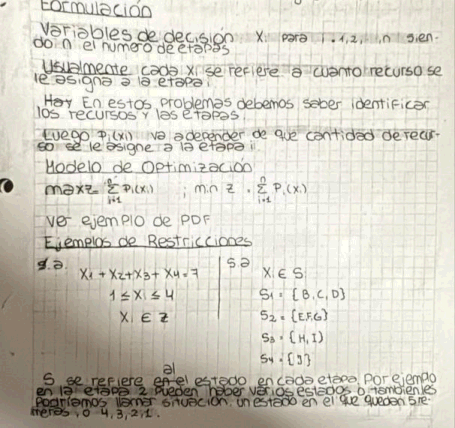 Formulación
Variables de decisión Xi para i=1,2,..,n sien-
do n el número de etapas
Usualmente cada xi se refiere a cuanto recurso se
le asigna a la etapa i
Hay En estos problemas debemos saber identificar
los recursos y las etapas.
Luego Pi(xi) va a depender de que cantidad de recur-
so se le asigne a la etapa i.
Modelo de Optimización
max z = Σ(i=1 → n) Pi(xi) ; min z = Σ(i=1 → n) Pi(xi)
ver ejemplo de PDF
Ejemplos de Restricciones
s.a. X1 + X2 + X3 + X4 = 7
1 ≤ Xi ≤ 4
Xi ∈ Z
s.a Xi ∈ Si
S1 = {B,C,D}
S2 = {E,F,G}
S3 = {H,I}
S4 = {J}
S se refiere en al el estado en cada etapa, Por ejemplo
en la etapa 2 Pueden haber varios estados o también les
Podríamos llamar situación. un estado en el que quedan 5 re-
meras, o 4,3,2,1.